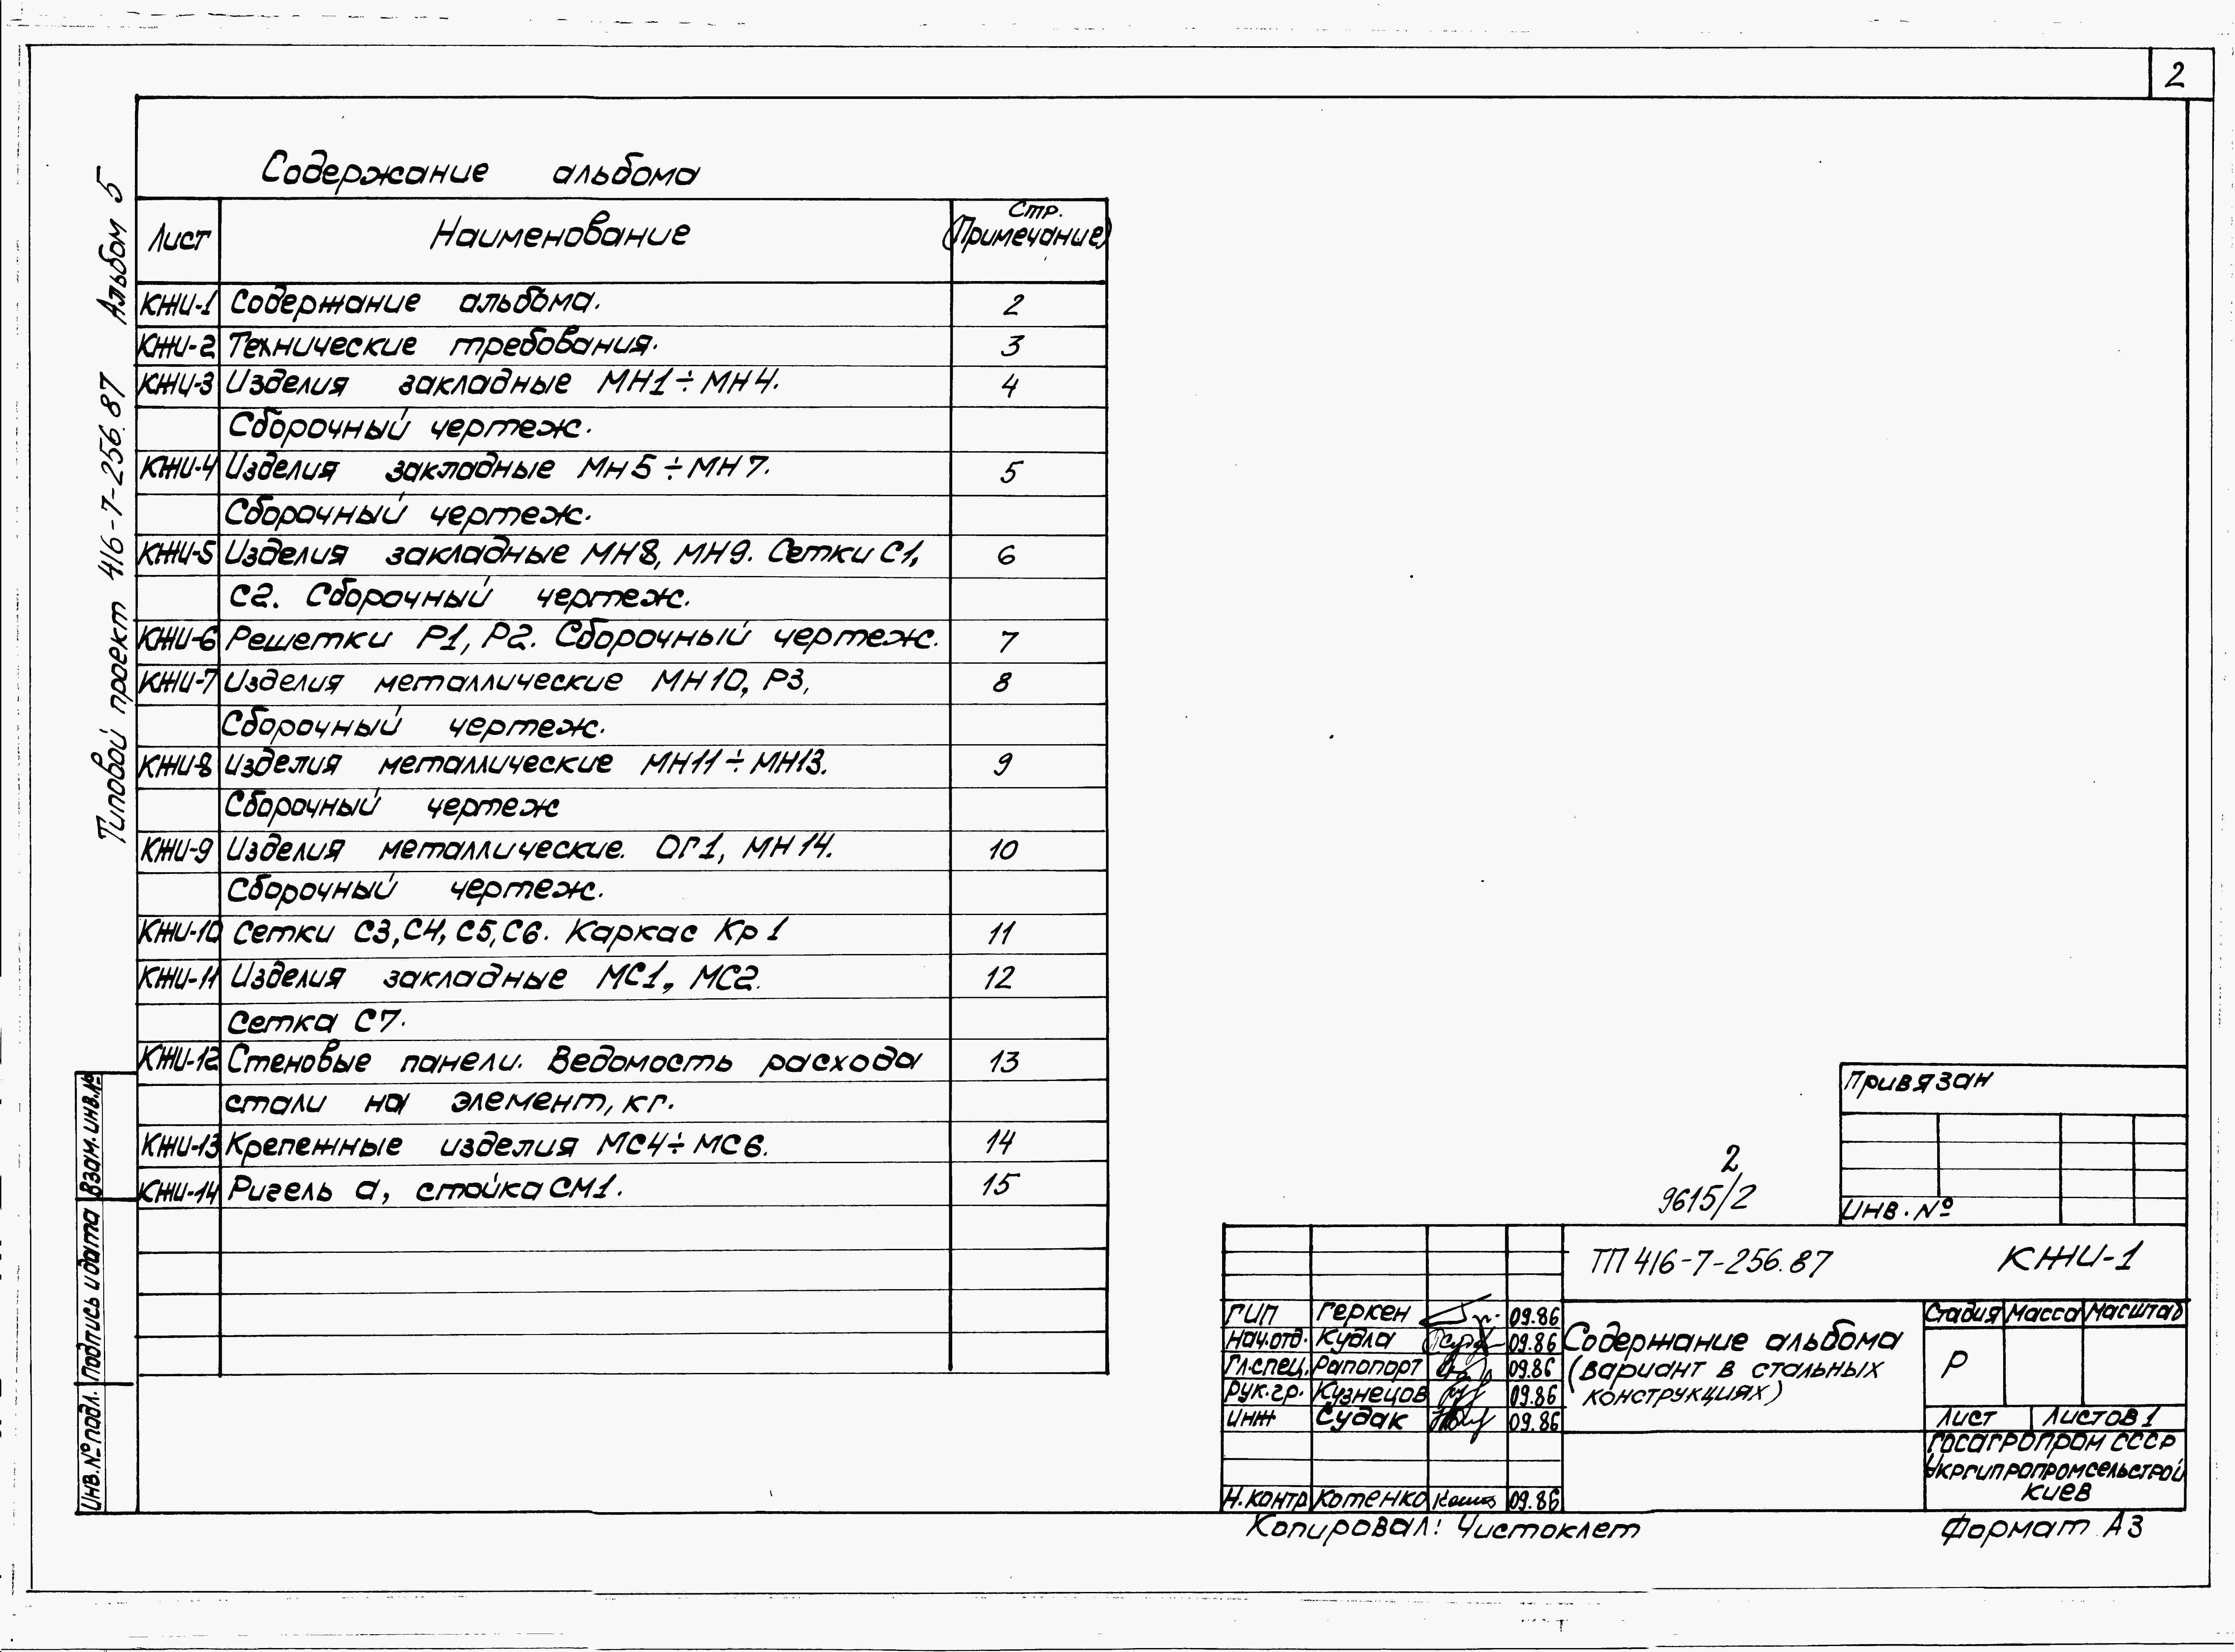 2
Типовой проект 416-7-256.87 Альбом 5
Содержание альбома
Лист Наименование Стр. (Примечание)
КЖИ-1 Содержание альбома. 2
КЖИ-2 Технические требования. 3
КЖИ-3 Изделия закладные МН1÷МН4. 4
Сборочный чертеж.
КЖИ-4 Изделия закладные МН5÷МН7. 5
Сборочный чертеж.
КЖИ-5 Изделия закладные МН8, МН9. Сетки С1, 6
С2. Сборочный чертеж.
КЖИ-6 Решетки Р1, Р2. Сборочный чертеж. 7
КЖИ-7 Изделия металлические МН10, Р3, 8
Сборочный чертеж.
КЖИ-8 Изделия металлические МН11÷МН13. 9
Сборочный чертеж
КЖИ-9 Изделия металлические. ОГ1, МН14. 10
Сборочный чертеж.
КЖИ-10 Сетки С3, С4, С5, С6. Каркас Кр1 11
КЖИ-11 Изделия закладные МС1, МС2. 12
Сетка С7.
КЖИ-12 Стеновые панели. Ведомость расхода 13
стали на элемент, кг.
КЖИ-13 Крепежные изделия МС4÷МС6. 14
КЖИ-14 Ригель а, стойка СМ1. 15
Взам. инв.№
Подпись и дата
Инв.№ подл.
Привязан
Инв.№
2
9615/2
ТП 416-7-256.87 КЖИ-1
ГИП Геркен 09.86
Нач.отд. Кудла 09.86
Гл.спец. Рапопорт 09.86
Рук.гр. Кузнецов 09.86
Инж Судак 09.86
Н.контр Котенко 09.86
Содержание альбома
(вариант в стальных
конструкциях)
Стадия Масса Масштаб
Р
Лист Листов 1
Госагропром СССР
Укргипропромсельстрой
Киев
Копировал: Чистоклет Формат А3